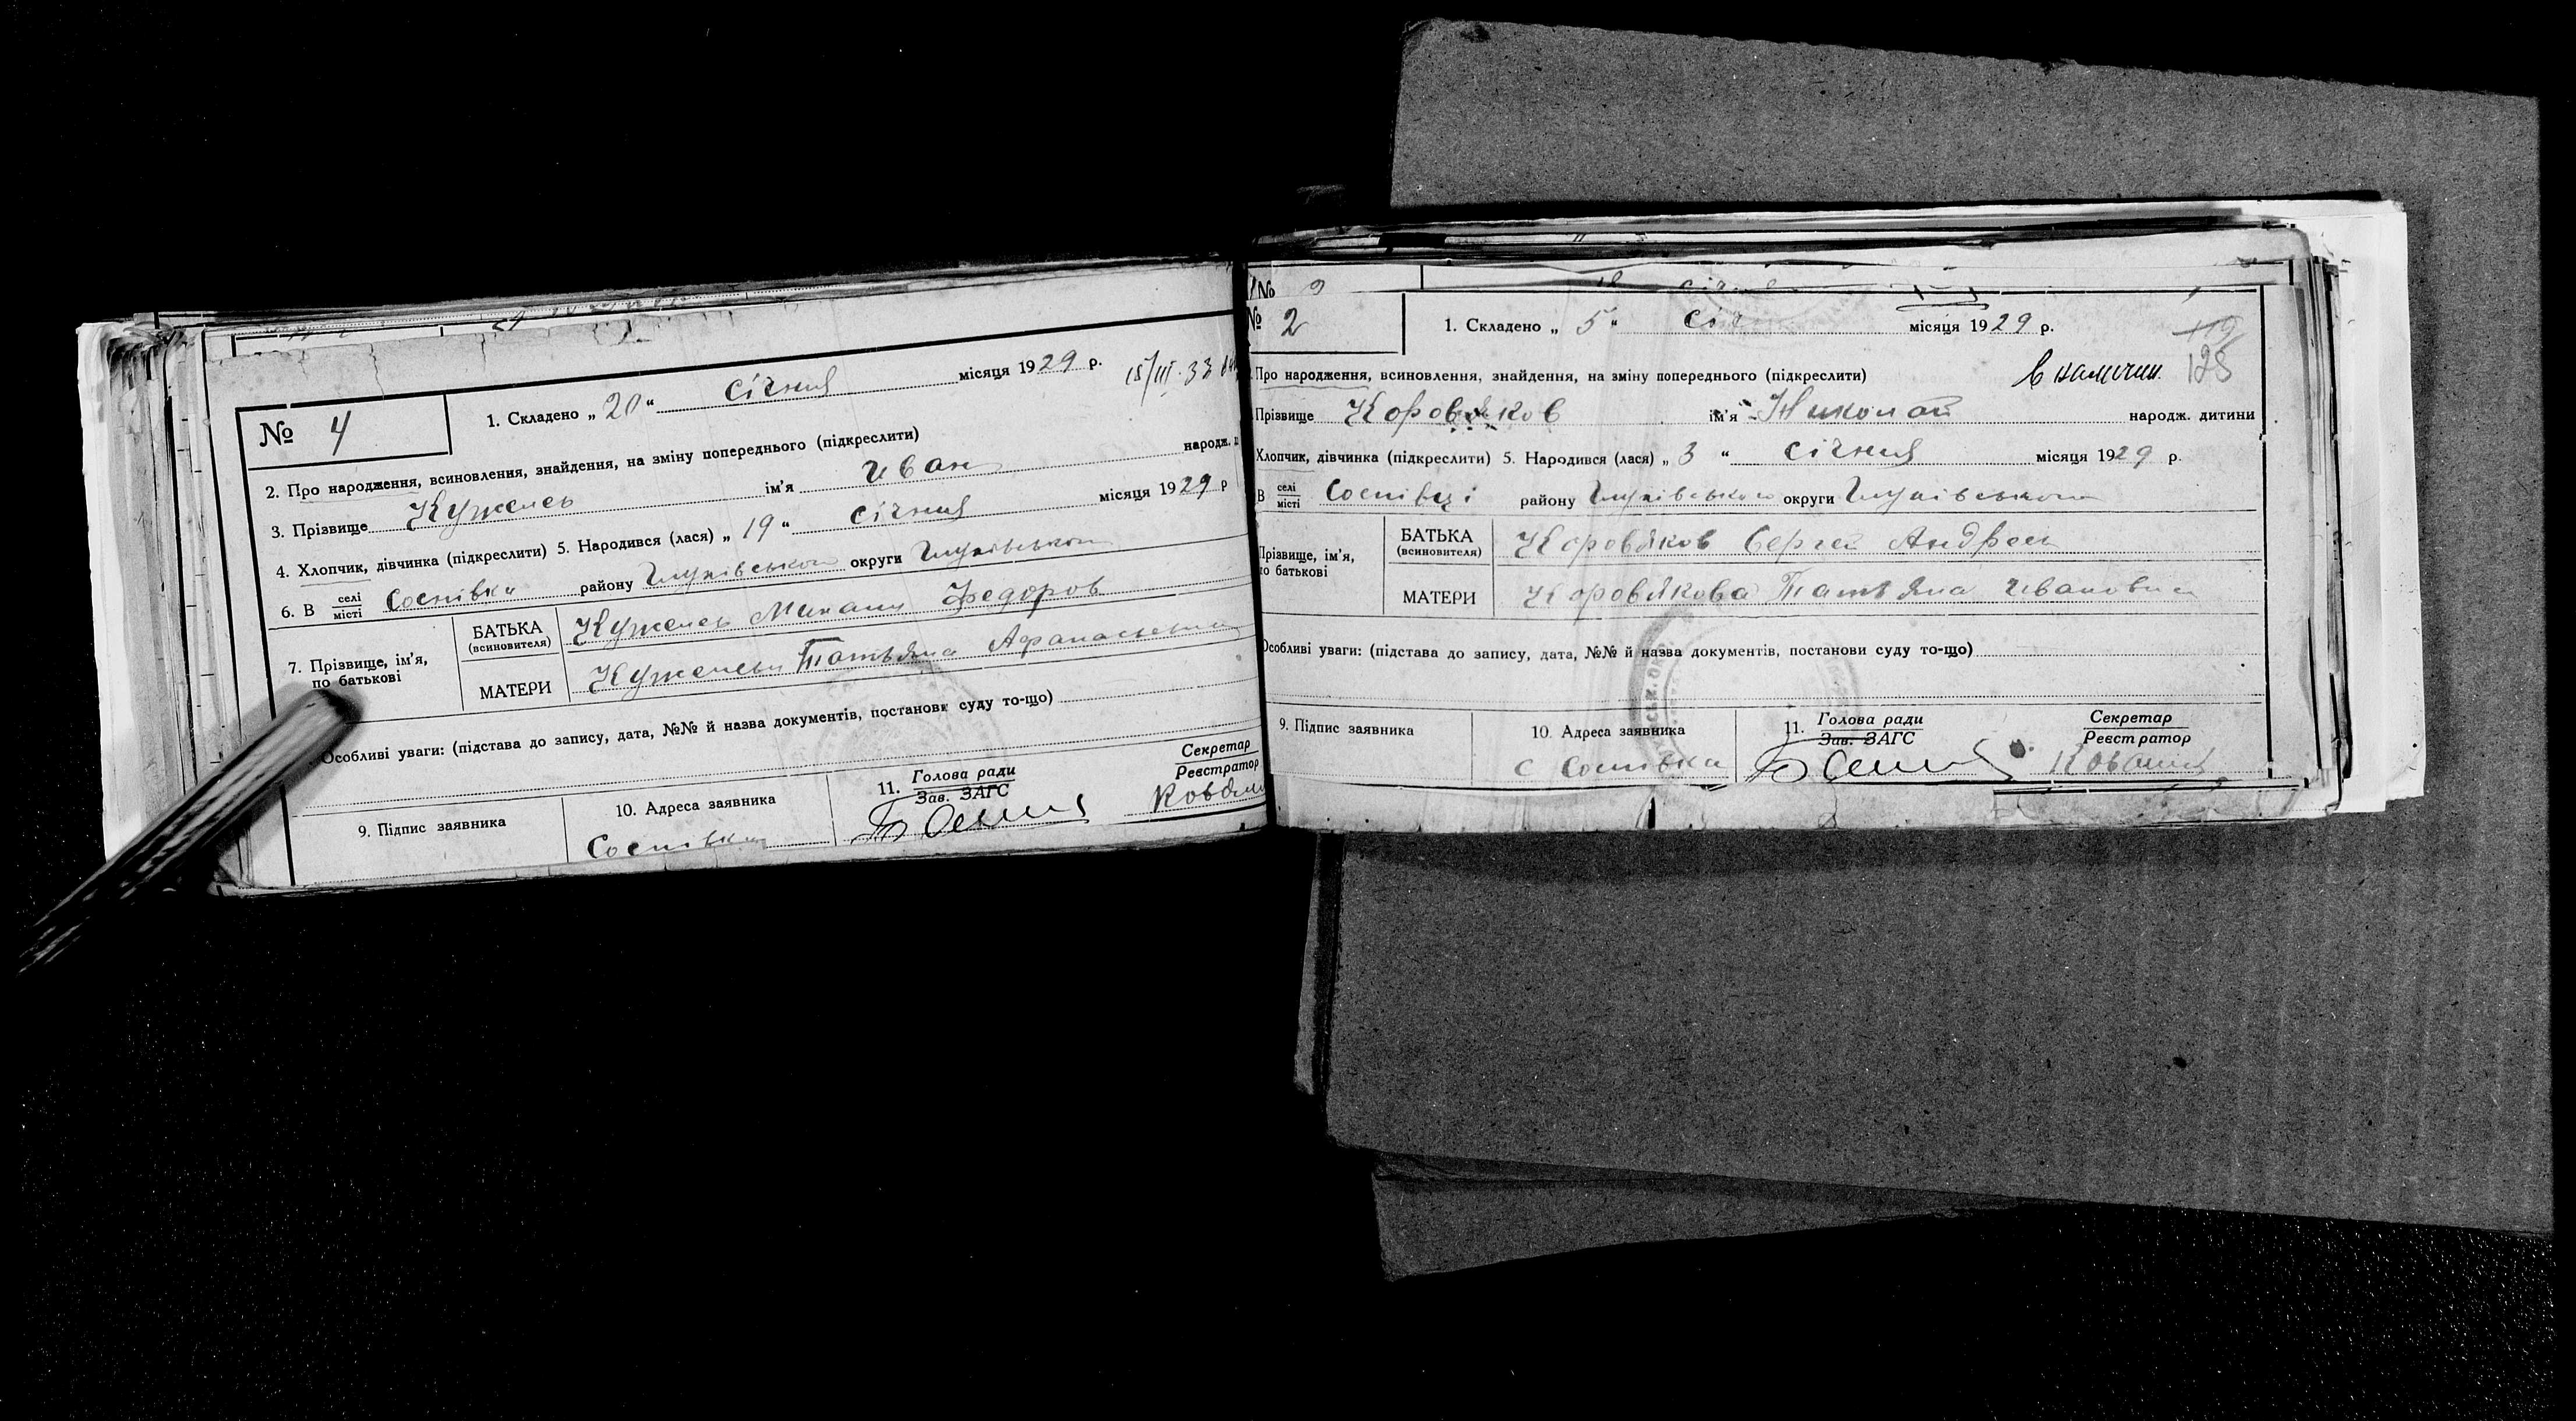 № 4
1. Складено „ 20 “ січня місяця 1929 р.
15/III-33
2. Про народження, всиновлення, знайдення, на зміну попереднього (підкреслити)
3. Прізвище Кужелєв ім'я Иван народж.
4. Хлопчик, дівчинка (підкреслити) 5. Народився (лася) „ 19 “ січня місяця 1929 р
6. В селі місті Соснівки району Глухівського округи Глухівського
7. Прізвище, ім'я, по батькові
БАТЬКА (всиновителя) Кужелев Михаил Федоров
МАТЕРИ Татьяна Афанасьевна
Особливі уваги: (підстава до запису, дата, №№ й назва документів, постанови суду то-що)
9. Підпис заявника
10. Адреса заявника
Соснівка
11. Голова ради
Зав. ЗАГС
Секретар
Реєстратор
№ 9
№ 2
1. Складено „ 5 “ січ місяця 1929 р.
128
Про народження, всиновлення, знайдення, на зміну попереднього (підкреслити)
в наличии
Прізвище Коровяков ім'я Николай народж. дитини
Хлопчик, дівчинка (підкреслити) 5. Народився (лася) „ 3 “ січня місяця 1929 р.
В селі місті Соснівці району Глухівського округи Глухівського
Прізвище, ім'я, по батькові
БАТЬКА (всиновителя) Коровяков Сергей Андреев
МАТЕРИ Коровякова Татьяна Ивановна
Особливі уваги: (підстава до запису, дата, №№ й назва документів, постанови суду то-що)
9. Підпис заявника
10. Адреса заявника
с Соснівка
11. Голова ради
Зав. ЗАГС
Секретар
Реєстратор